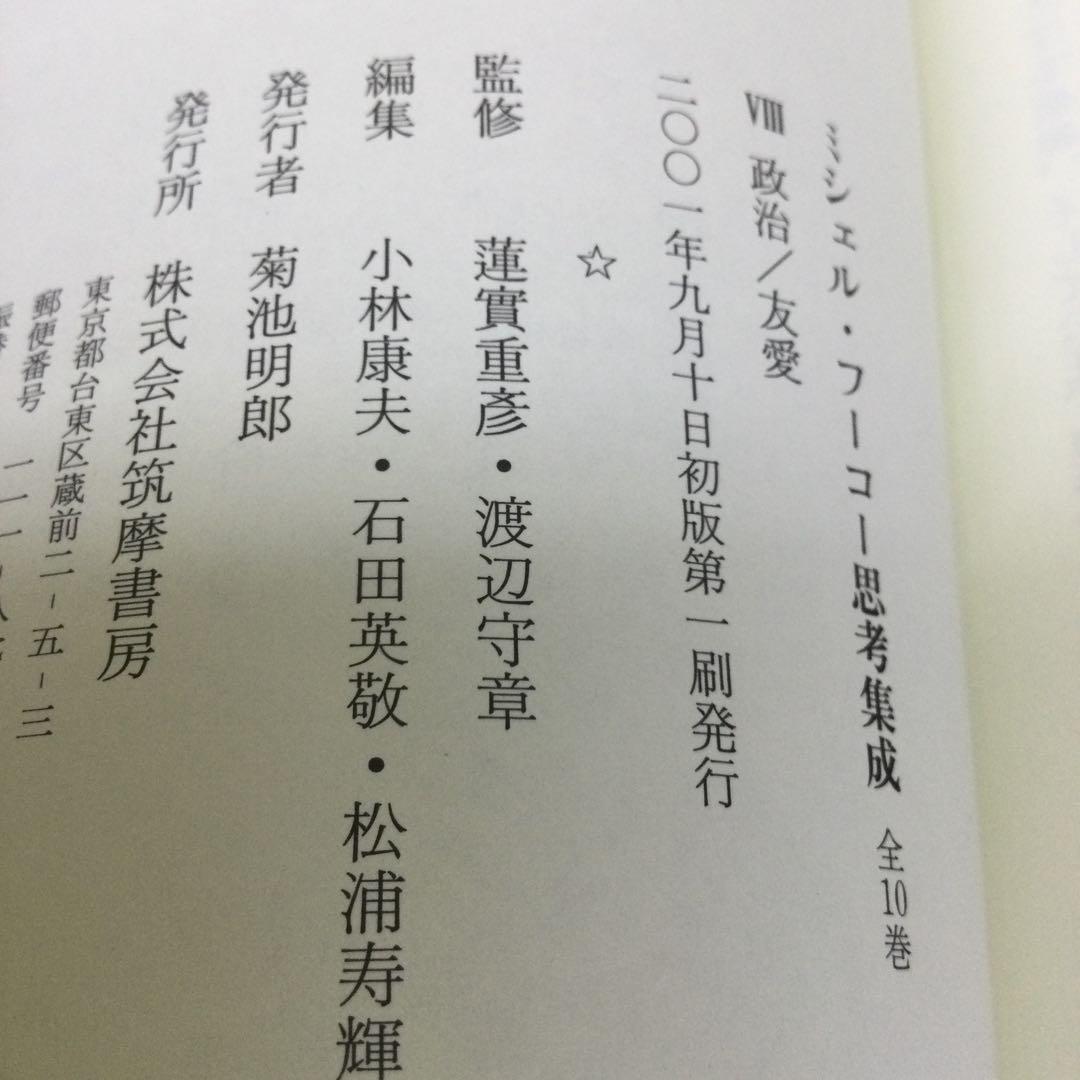 ミシェル・フーコー思考集成 全10巻
Ⅷ 政治/友愛
二〇〇一年九月十日初版第一刷発行
☆
監修 蓮實重彥・渡辺守章
編集 小林康夫・石田英敬・松浦寿輝
発行者 菊池明郎
発行所 株式会社筑摩書房
東京都台東区蔵前二-五-三
郵便番号 一一一-八七